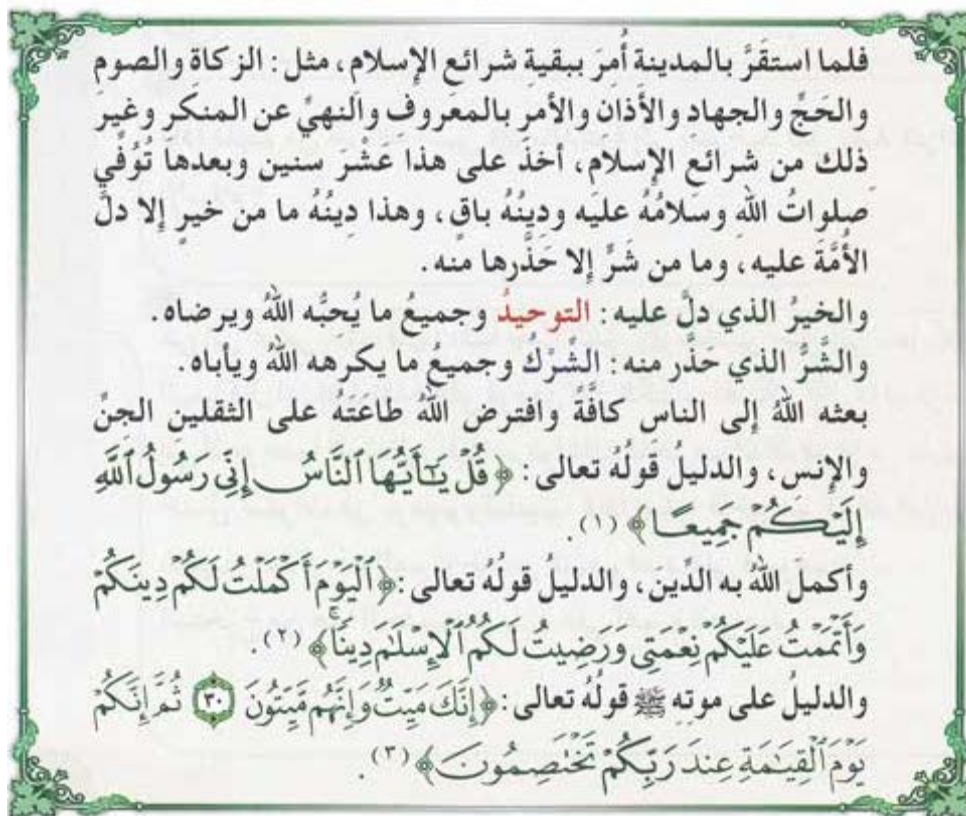 فلما استقَرَّ بالمدينة أُمِرَ ببقيةِ شرائعِ الإسلامِ، مثل: الزكاة والصومِ
والحَجِّ والجهاد والأَذان والأمرِ بالمعروف والنهيِّ عن المنكَرِ وغيرِ
ذلك من شرائعِ الإسلامِ، أخذَ على هذا عَشْرَ سنين وبعدها تُوُفِّي
صلواتُ اللهِ وسَلامُهُ عليه ودِينُهُ باقٍ، وهذا دِينُهُ ما من خيرٍ إلا دلَّ
الأُمَّةَ عليه، وما من شَرٍّ إلا حَذَّرها منه.
والخيرُ الذي دلَّ عليه: التوحيدُ وجميعُ ما يُحبُّه اللهُ ويرضاه.
والشَّرُّ الذي حَذَّر منه: الشِّرْكُ وجميعُ ما يكرهه اللهُ ويأباه.
بعثه اللهُ إلى الناس كافَّةً وافترض اللهُ طاعتَه على الثقلينِ الجنِّ
والإنس، والدليلُ قولُهُ تعالى: ﴿قُلْ يَـٰٓأَيُّهَا ٱلنَّاسُ إِنِّى رَسُولُ ٱللَّهِ
إِلَيْكُمْ جَمِيعًا﴾ (١).
وأكمل اللهُ به الدِّين، والدليلُ قولُهُ تعالى: ﴿ٱلْيَوْمَ أَكْمَلْتُ لَكُمْ دِينَكُمْ
وَأَتْمَمْتُ عَلَيْكُمْ نِعْمَتِى وَرَضِيتُ لَكُمُ ٱلْإِسْلَـٰمَ دِينًا﴾ (٢).
والدليلُ على موته ﷺ قولُهُ تعالى: ﴿إِنَّكَ مَيِّتٌ وَإِنَّهُم مَّيِّتُونَ ٣٠ ثُمَّ إِنَّكُمْ
يَوْمَ ٱلْقِيَـٰمَةِ عِندَ رَبِّكُمْ تَخْتَصِمُونَ﴾ (٣).